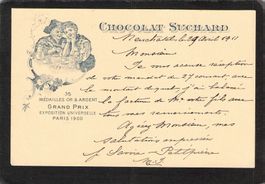 CHOCOLAT SUCHARD
Neuchâtel, le 29 Avril 1911
Monsieur
Je vous accuse réception
de votre mandat du 27 courant, avec
le montant duquel j'ai balancé
la facture de Mr votre fils avec
tous nos remerciements.
Agréez Monsieur, nos
salutations empressées
35
MEDAILLES OR & ARGENT
GRAND PRIX
EXPOSITION UNIVERSELLE
PARIS 1900